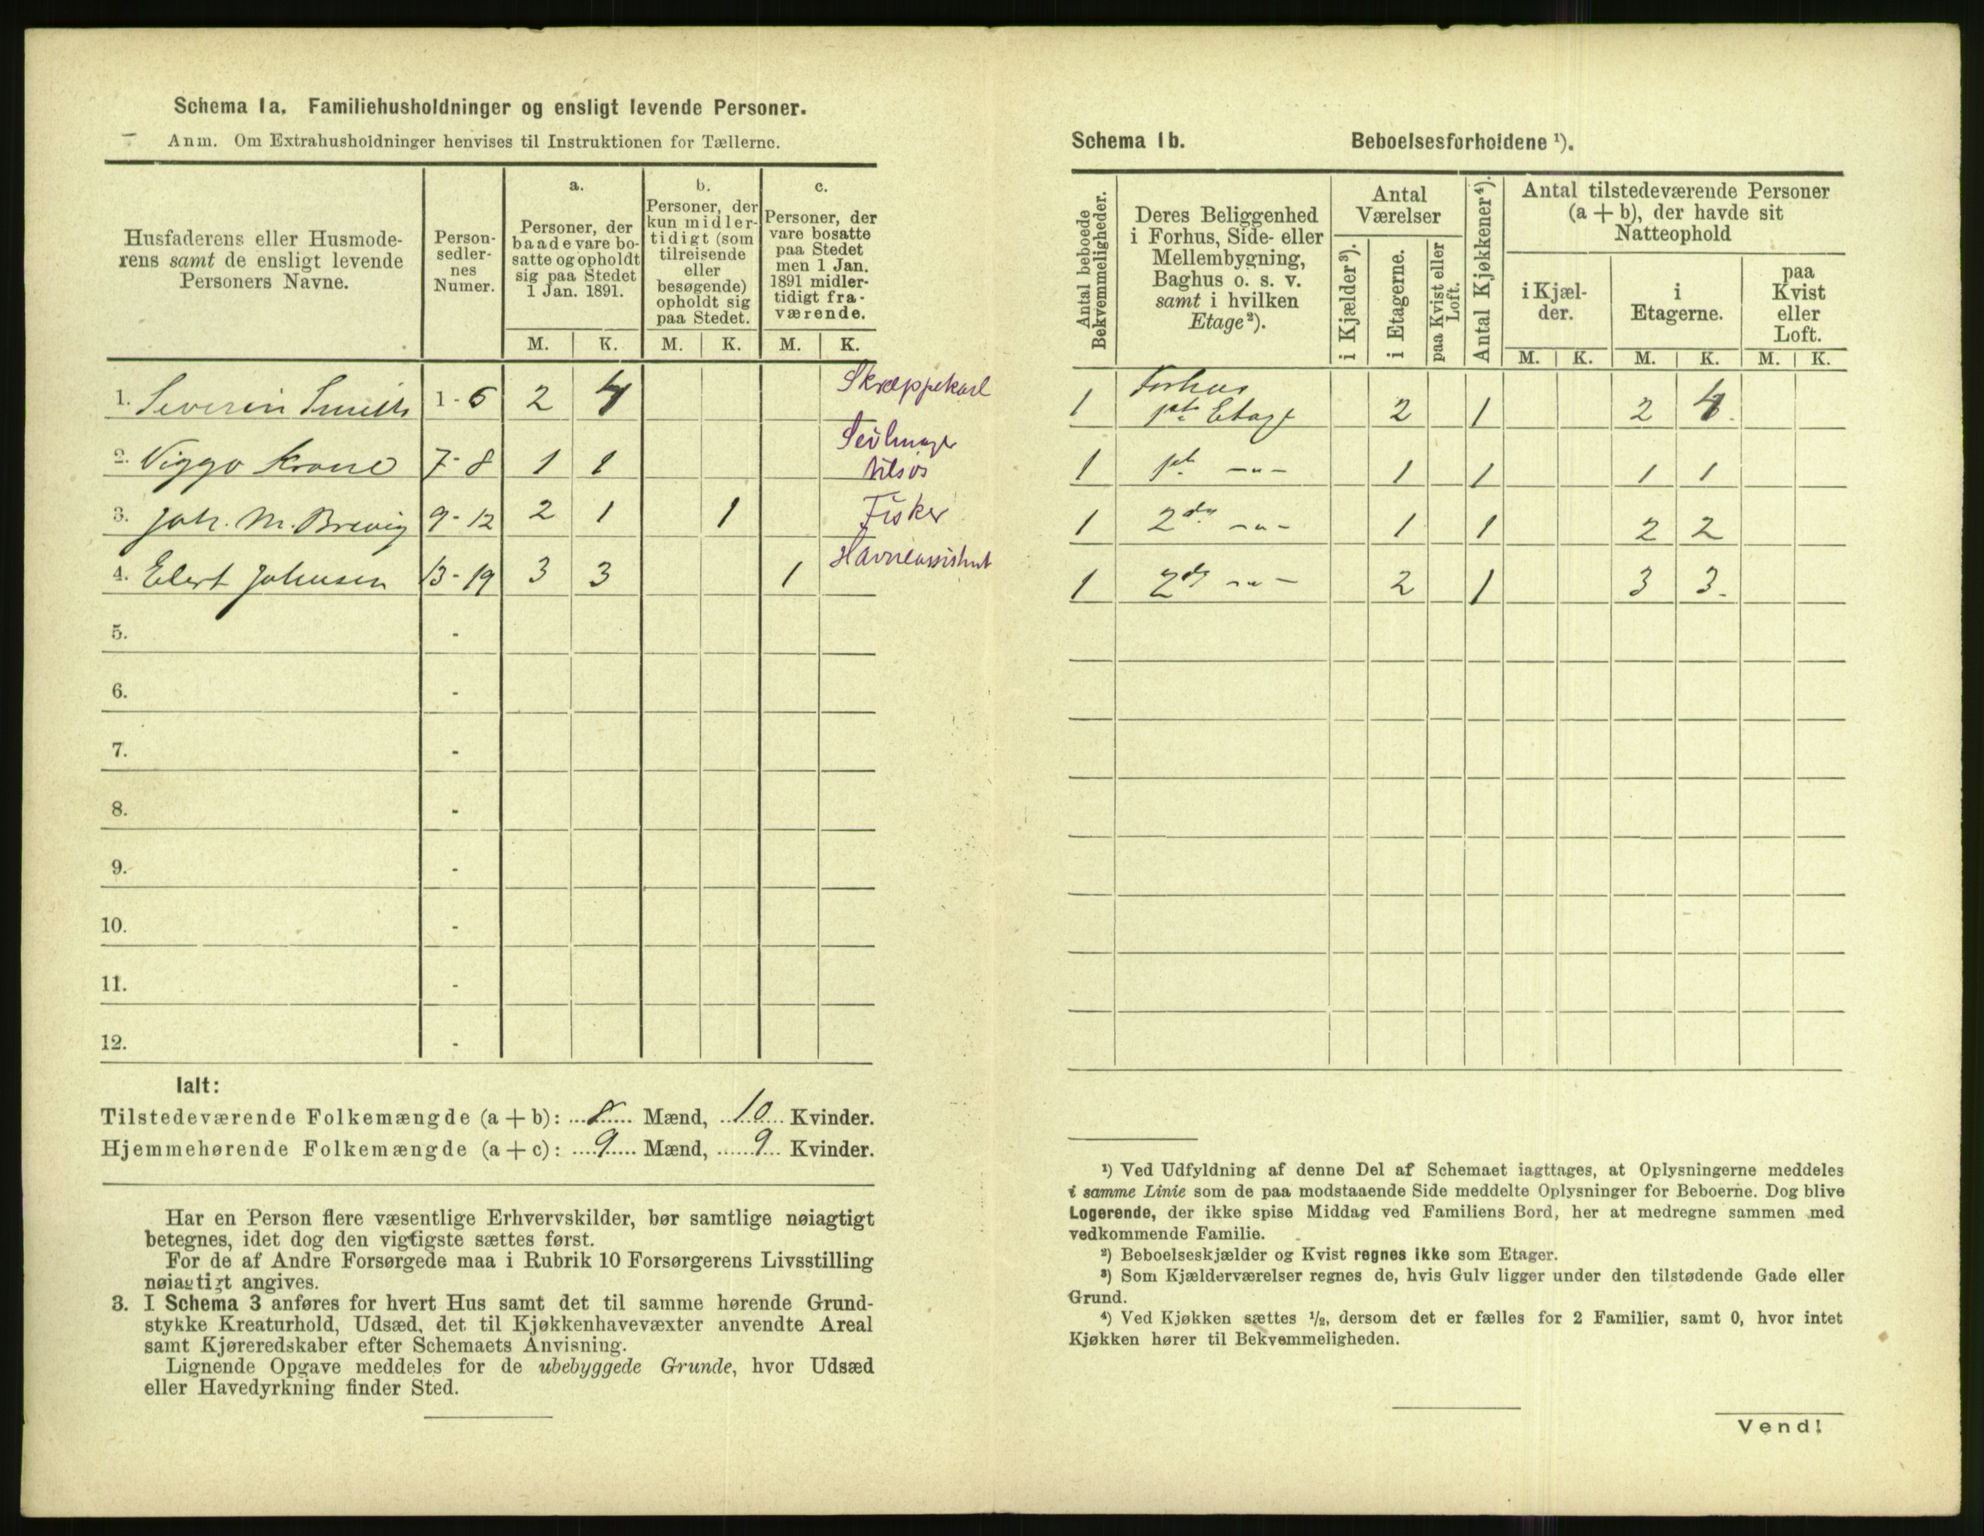 Schema 1a. Familiehusholdninger og ensligt levende Personer.
Anm. Om Extrahusholdninger henvises til Instruktionen for Tællerne.
Husfaderens eller Husmode-
rens samt de ensligt levende
Personers Navne.
Person-
sedler-
nes
Numer.
a.
Personer, der
baade vare bo-
satte og opholdt
sig paa Stedet
1 Jan. 1891.
b.
Personer, der
kun midler-
tidigt (som
tilreisende
eller
besøgende)
opholdt sig
paa Stedet.
c.
Personer, der
vare bosatte
paa Stedet
men 1 Jan.
1891 midler-
tidigt fra-
værende.
M. K. M. K. M. K.
1. Severin Smith 1-6 2 4 Skræppekarl
2. Viggo Krane 7-8 1 1
tilsøs
3. Joh. M. Brevig 9-12 2 1 1 Fisker
4. Elert Johnsen 13-19 3 3 1 Havneassistent
5. -
6. -
7. -
8. -
9. -
10. -
11. -
12. -
Ialt:
Tilstedeværende Folkemængde (a + b): 8 Mænd, 10 Kvinder.
Hjemmehørende Folkemængde (a + c): 9 Mænd, 9 Kvinder.
Har en Person flere væsentlige Erhvervskilder, bør samtlige nøiagtigt
betegnes, idet dog den vigtigste sættes først.
For de af Andre Forsørgede maa i Rubrik 10 Forsørgerens Livsstilling
nøiagtigt angives.
3. I Schema 3 anføres for hvert Hus samt det til samme hørende Grund-
stykke Kreaturhold, Udsæd, det til Kjøkkenhavevæxter anvendte Areal
samt Kjøreredskaber efter Schemaets Anvisning.
Lignende Opgave meddeles for de ubebyggede Grunde, hvor Udsæd
eller Havedyrkning finder Sted.
Schema 1b. Beboelsesforholdene ¹).
Antal beboede
Bekvemmeligheder.
Deres Beliggenhed
i Forhus, Side- eller
Mellembygning,
Baghus o. s. v.
samt i hvilken
Etage²).
Antal
Værelser
i Kjælder³).
i Etagerne.
paa Kvist eller
Loft.
Antal Kjøkkener⁴).
Antal tilstedeværende Personer
(a + b), der havde sit
Natteophold
i Kjæl-
der.
i
Etagerne.
paa
Kvist
eller
Loft.
M. K. M. K. M. K.
1 Forhus
1ste Etage 2 1 2 4
1 1ste -"- 1 1 1 1
1 2den -"- 1 1 2 2
1 2den -"- 2 1 3 3
¹) Ved Udfyldning af denne Del af Schemaet iagttages, at Oplysningerne meddeles
i samme Linie som de paa modstaaende Side meddelte Oplysninger for Beboerne. Dog blive
Logerende, der ikke spise Middag ved Familiens Bord, her at medregne sammen med
vedkommende Familie.
²) Beboelseskjælder og Kvist regnes ikke som Etager.
³) Som Kjælderværelser regnes de, hvis Gulv ligger under den tilstødende Gade eller
Grund.
⁴) Ved Kjøkken sættes ½, dersom det er fælles for 2 Familier, samt 0, hvor intet
Kjøkken hører til Bekvemmeligheden.
Vend!